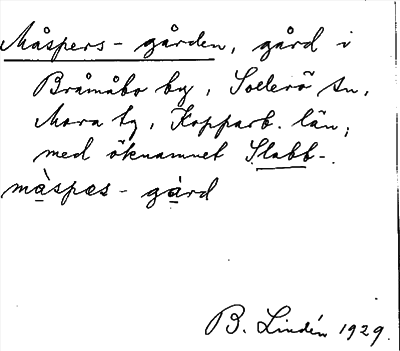 Måspers-gården, gård i
Bråmåbo by, Sollerö sn,
Mora tg, Kopparb. län;
med öknamnet Slabb-.
må̀spæs-gà̠rd
B. Lindén 1929.